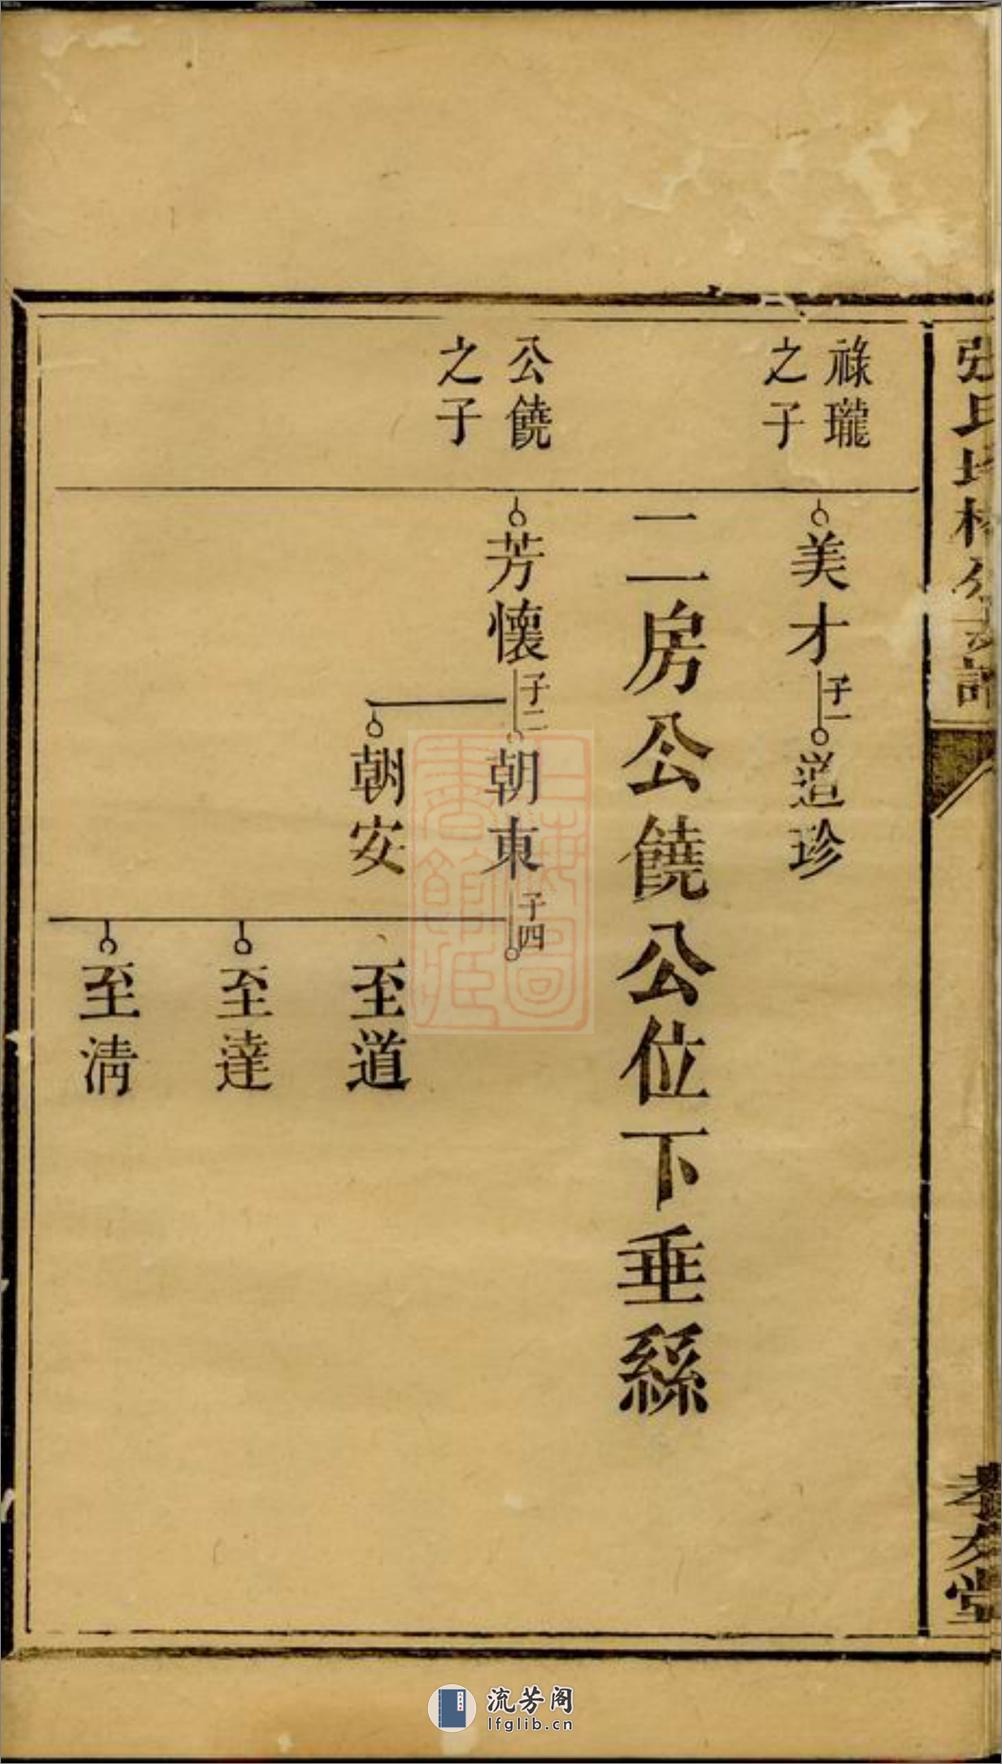 祿瓏
之子
美才
子一
道珍
二房公饒公位下垂絲
公饒
之子
芳懷
子二
朝東
子四
朝安
至道
至達
至清
孝友堂
流芳阁
lfglib.cn